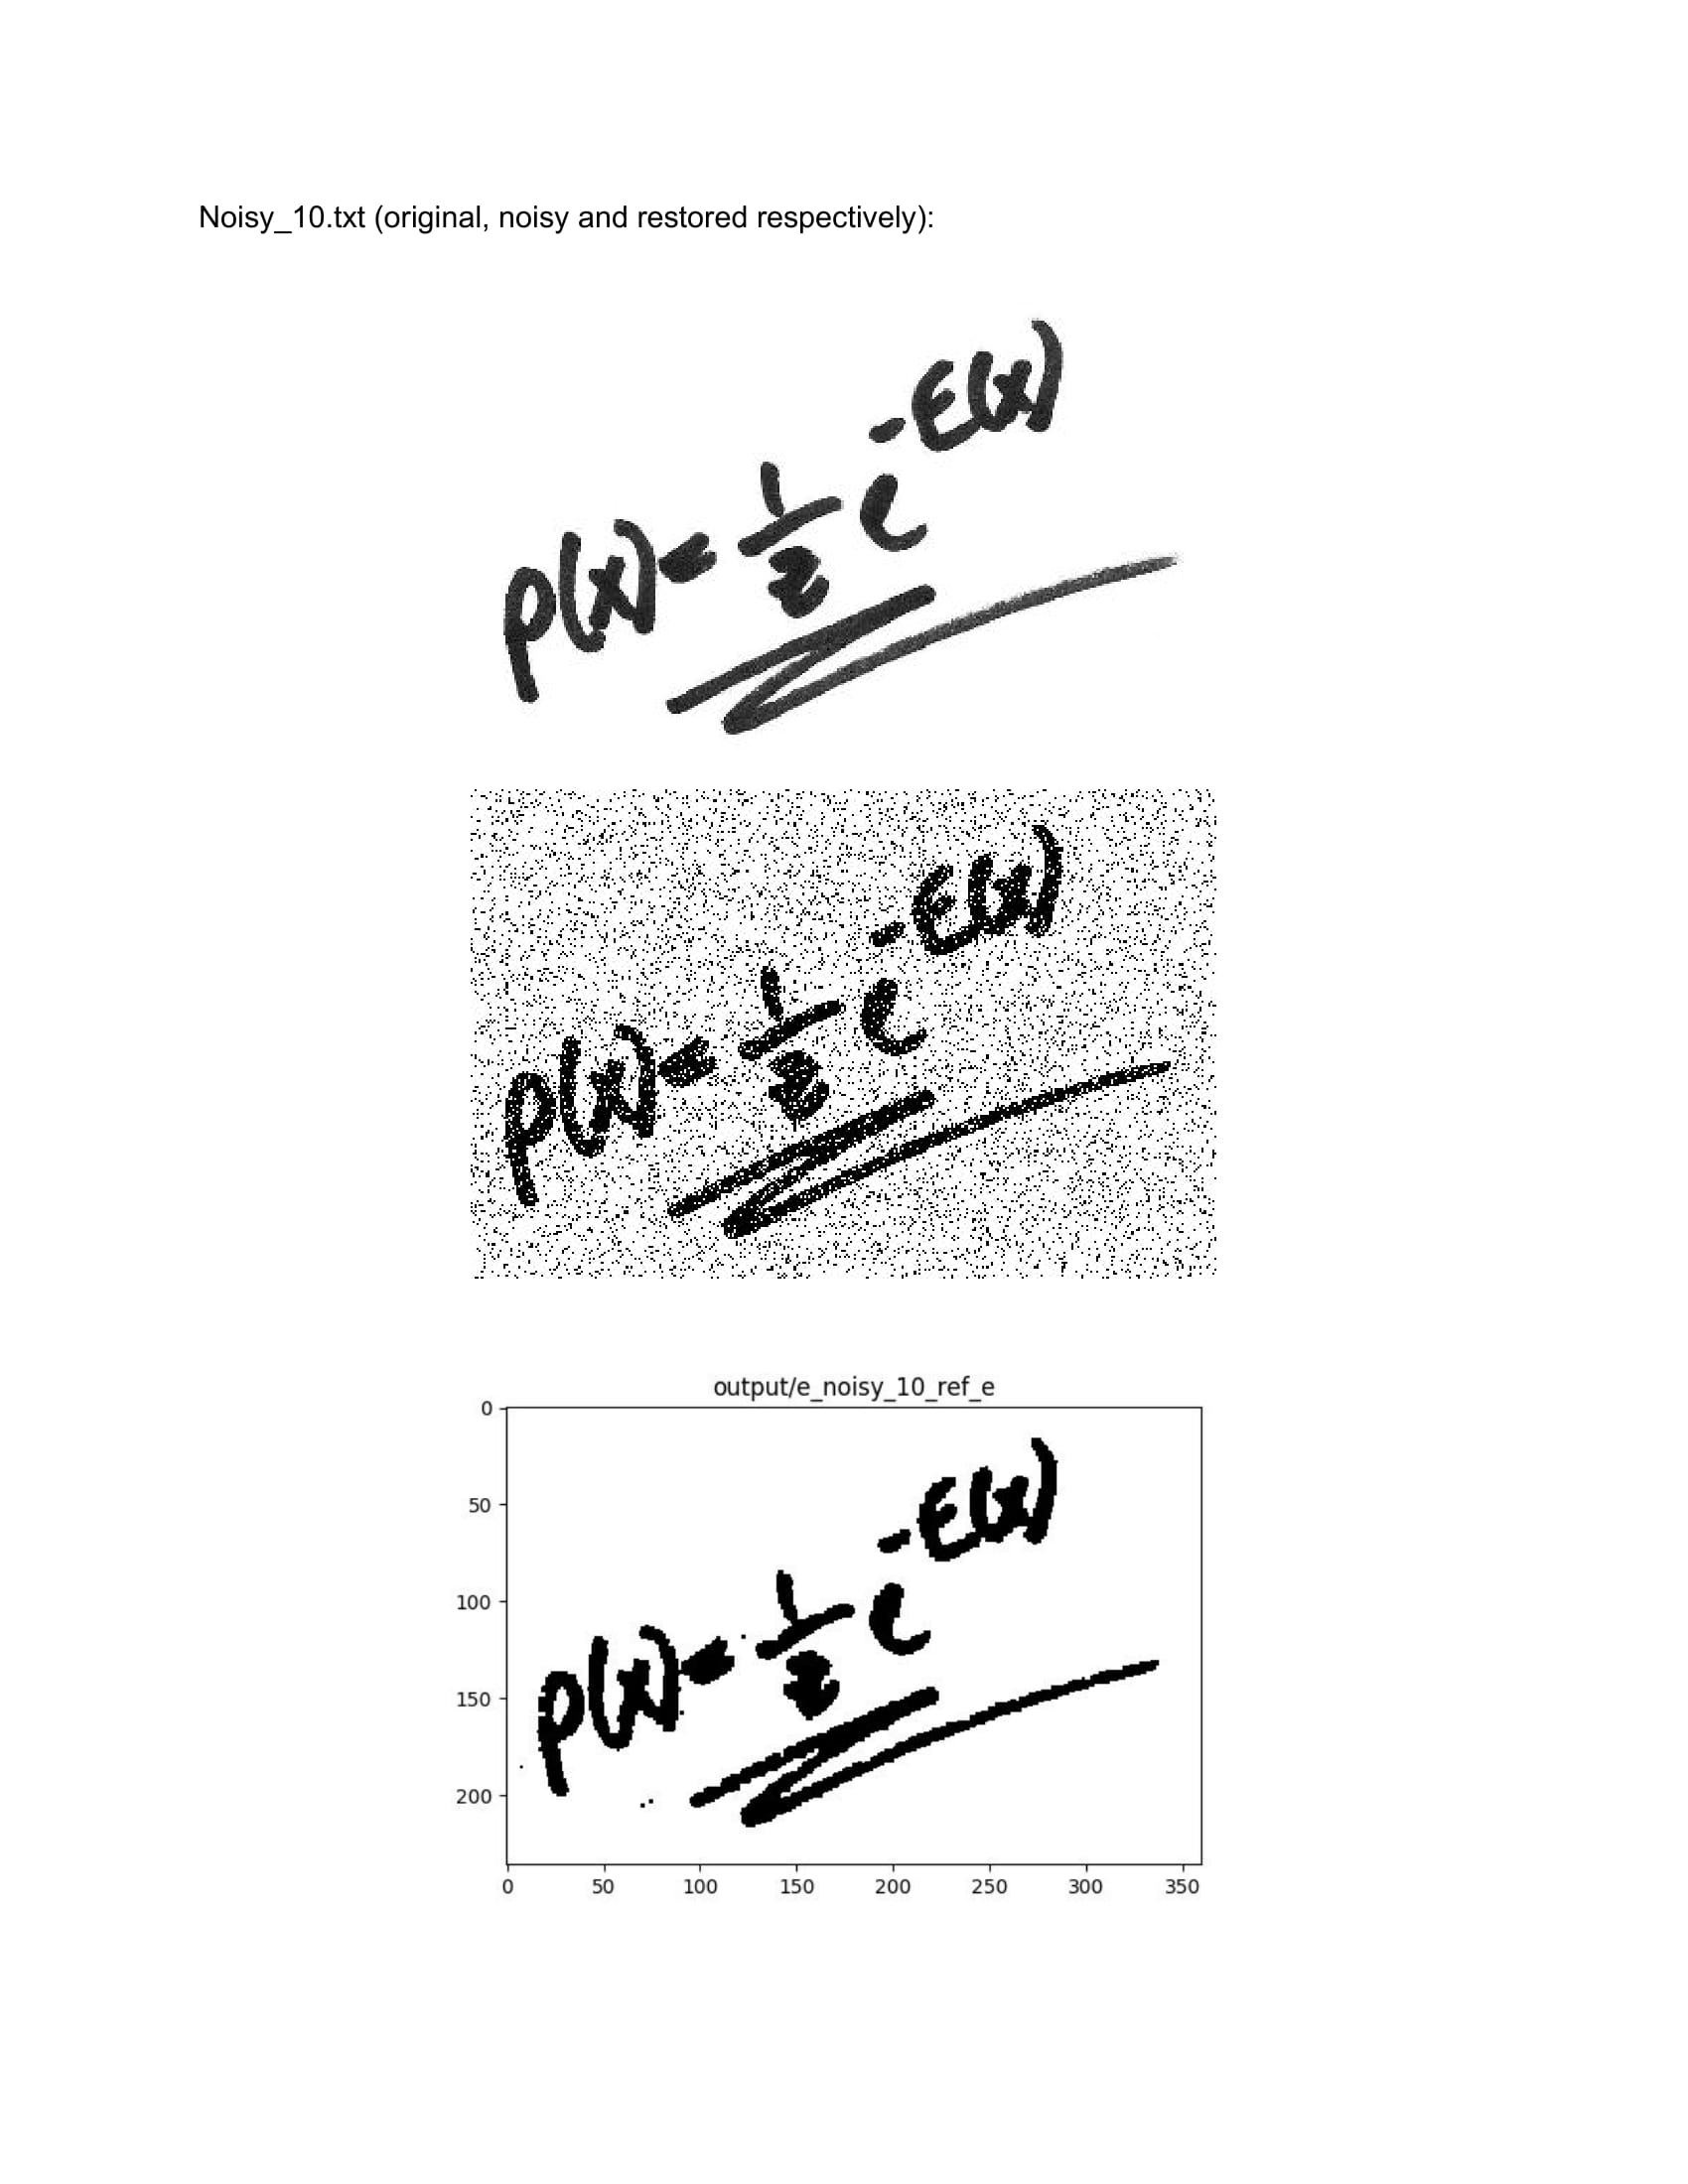 Noisy_10.txt (original, noisy and restored respectively):
p(x) = 1/z e^-E(x)
p(x) = 1/z e^-E(x)
output/e_noisy_10_ref_e
0
50
100
150
200
p(x) = 1/z e^-E(x)
0 50 100 150 200 250 300 350